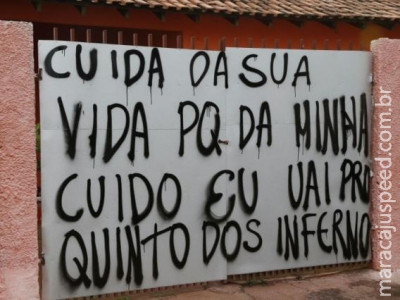 CUIDA DA SUA
VIDA PQ DA MINHA
CUIDO EU VAI PRO
QUINTO DOS INFERNO
www.maracajuspeed.com.br